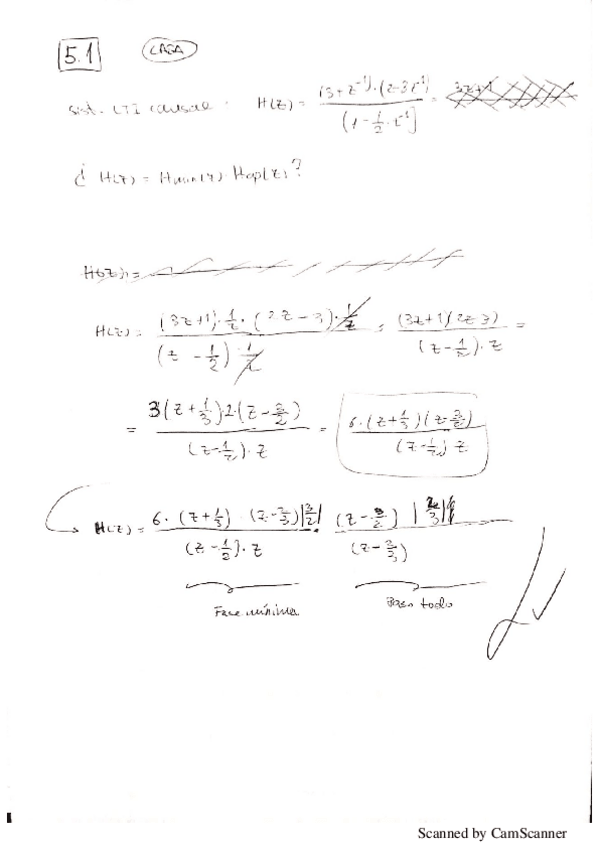 5.1 CASA
sist. LTI causal. H(z) = (3+z⁻¹)·(2-3z⁻¹) / (1-½·z⁻¹) =
¿ H(z) = Hmin(z)·Hap(z)?
H(z) =
H(z) = (3z+1)·1/z·(2z-3)·1/z / (z-1/2)·1/z = (3z+1)(2z-3) / (z-1/2)·z =
= 3(z+1/3)·2·(z-3/2) / (z-1/2)·z = 6·(z+1/3)(z-3/2) / (z-1/2) z
H(z) = 6·(z+1/3)·(z-2/3)|3/2| / (z-1/2)·z · (z-3/2) |2/3| / (z-2/3)
Fase mínima Paso todo
Scanned by CamScanner